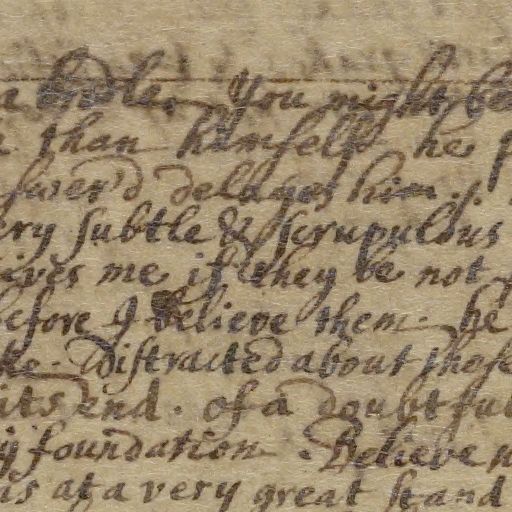 a bridle. You might be
than himself he
swer'd delayes him.
ery subtle & scrupulous
eives me if they be not
before I believe them. he
ke. Distracted about those
its end. of a doubtful
foundation. Believe
is at a very great stand